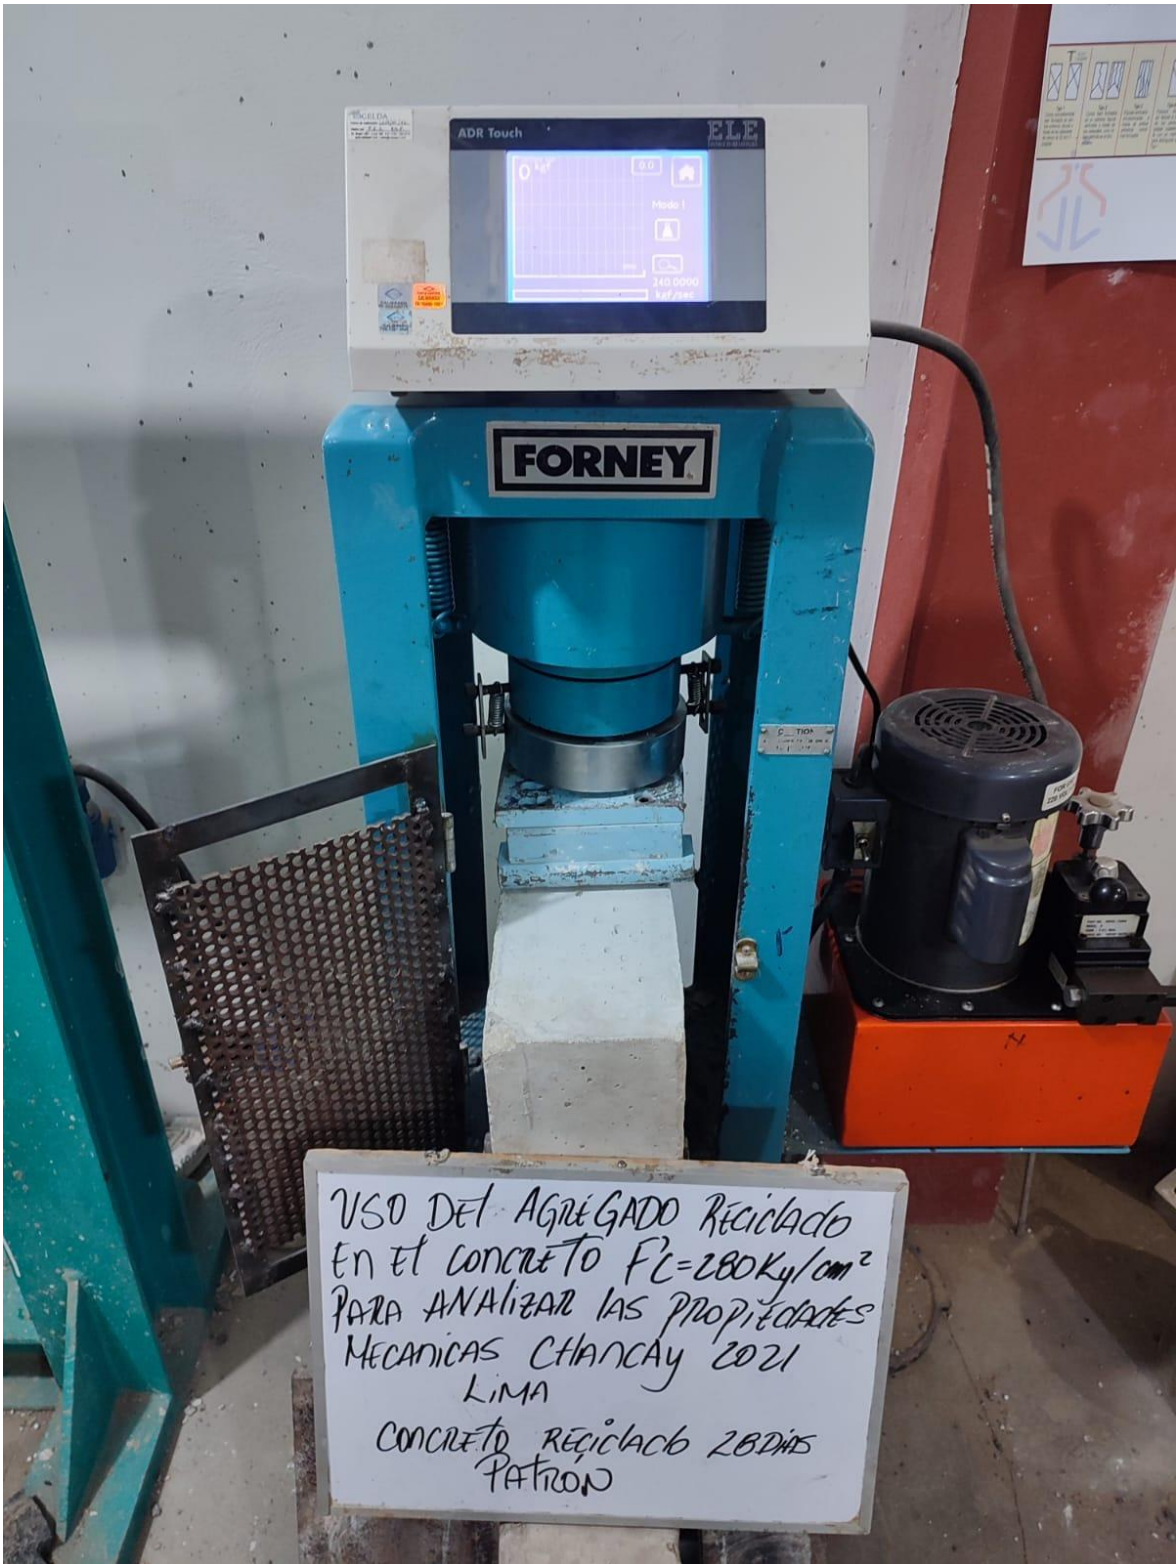 ADR Touch
ELE
0 kgf
0.0
Modo 1
240.0000
kgf/sec
FORNEY
USO DEL AGREGADO RECICLADO
EN EL CONCRETO F'C=280Kg/cm²
PARA ANALIZAR LAS PROPIEDADES
MECANICAS CHANCAY 2021
LIMA
CONCRETO RECICLADO 28 DIAS
PATRÓN